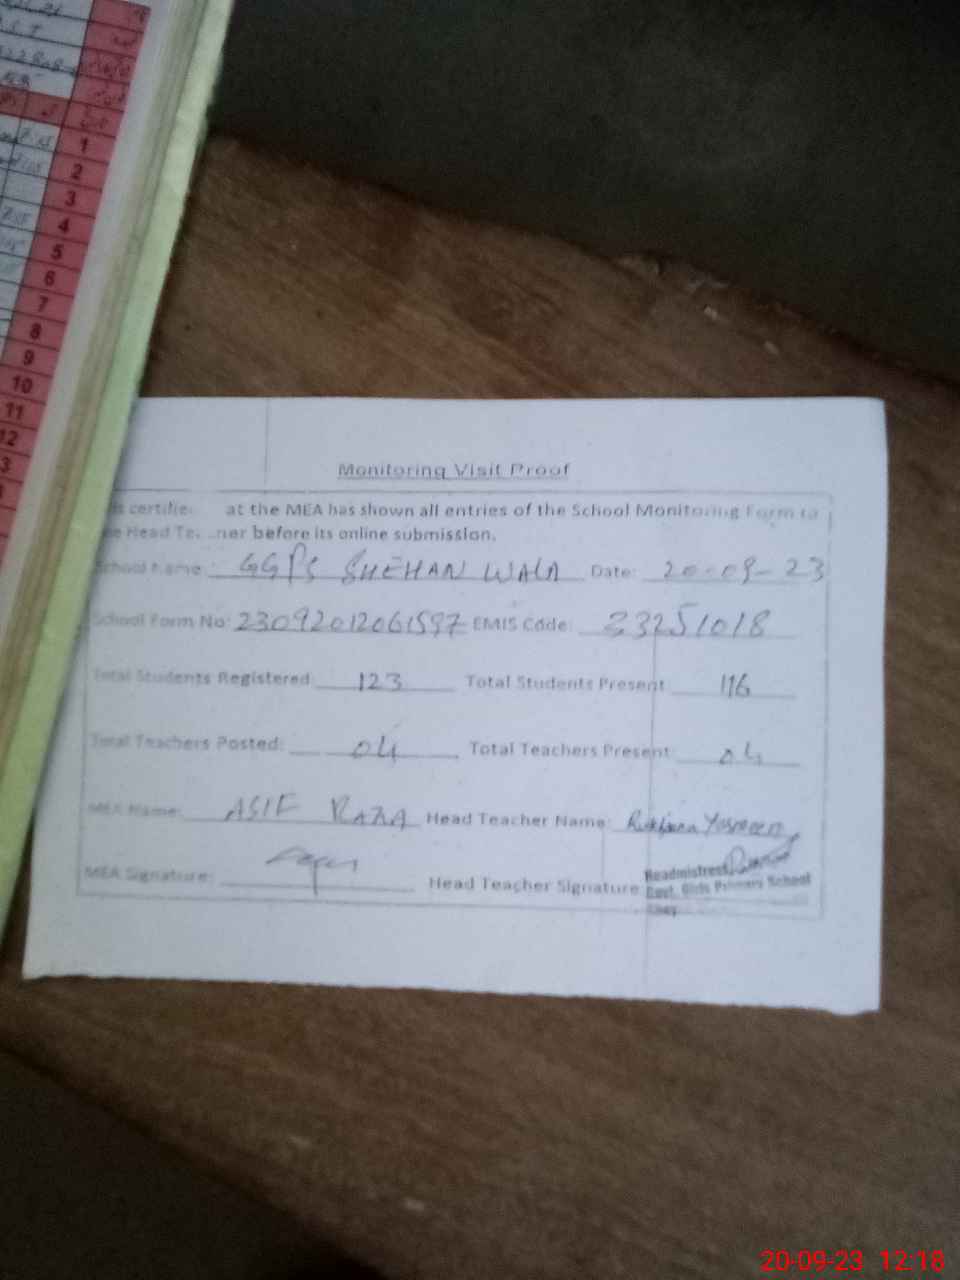 1
2
3
4
5
6
7
8
9
10
11
12
3
Monitoring Visit Proof
is certifie at the MEA has shown all entries of the School Monitoring Form to
Head Te ner before its online submission.
School Name: GGPS SHEHAN WALA Date: 20-09-23
School Form No: 23092012061597 EMIS Code: 33251018
Total Students Registered 123 Total Students Present 116
Total Teachers Posted: 04 Total Teachers Present: 04
MEA Name: ASIF RAZA Head Teacher Name: Rukhsana Yasmeen
MEA Signature: Head Teacher Signature
Headmistress
Govt. Girls Primary School
20-09-23 12:18